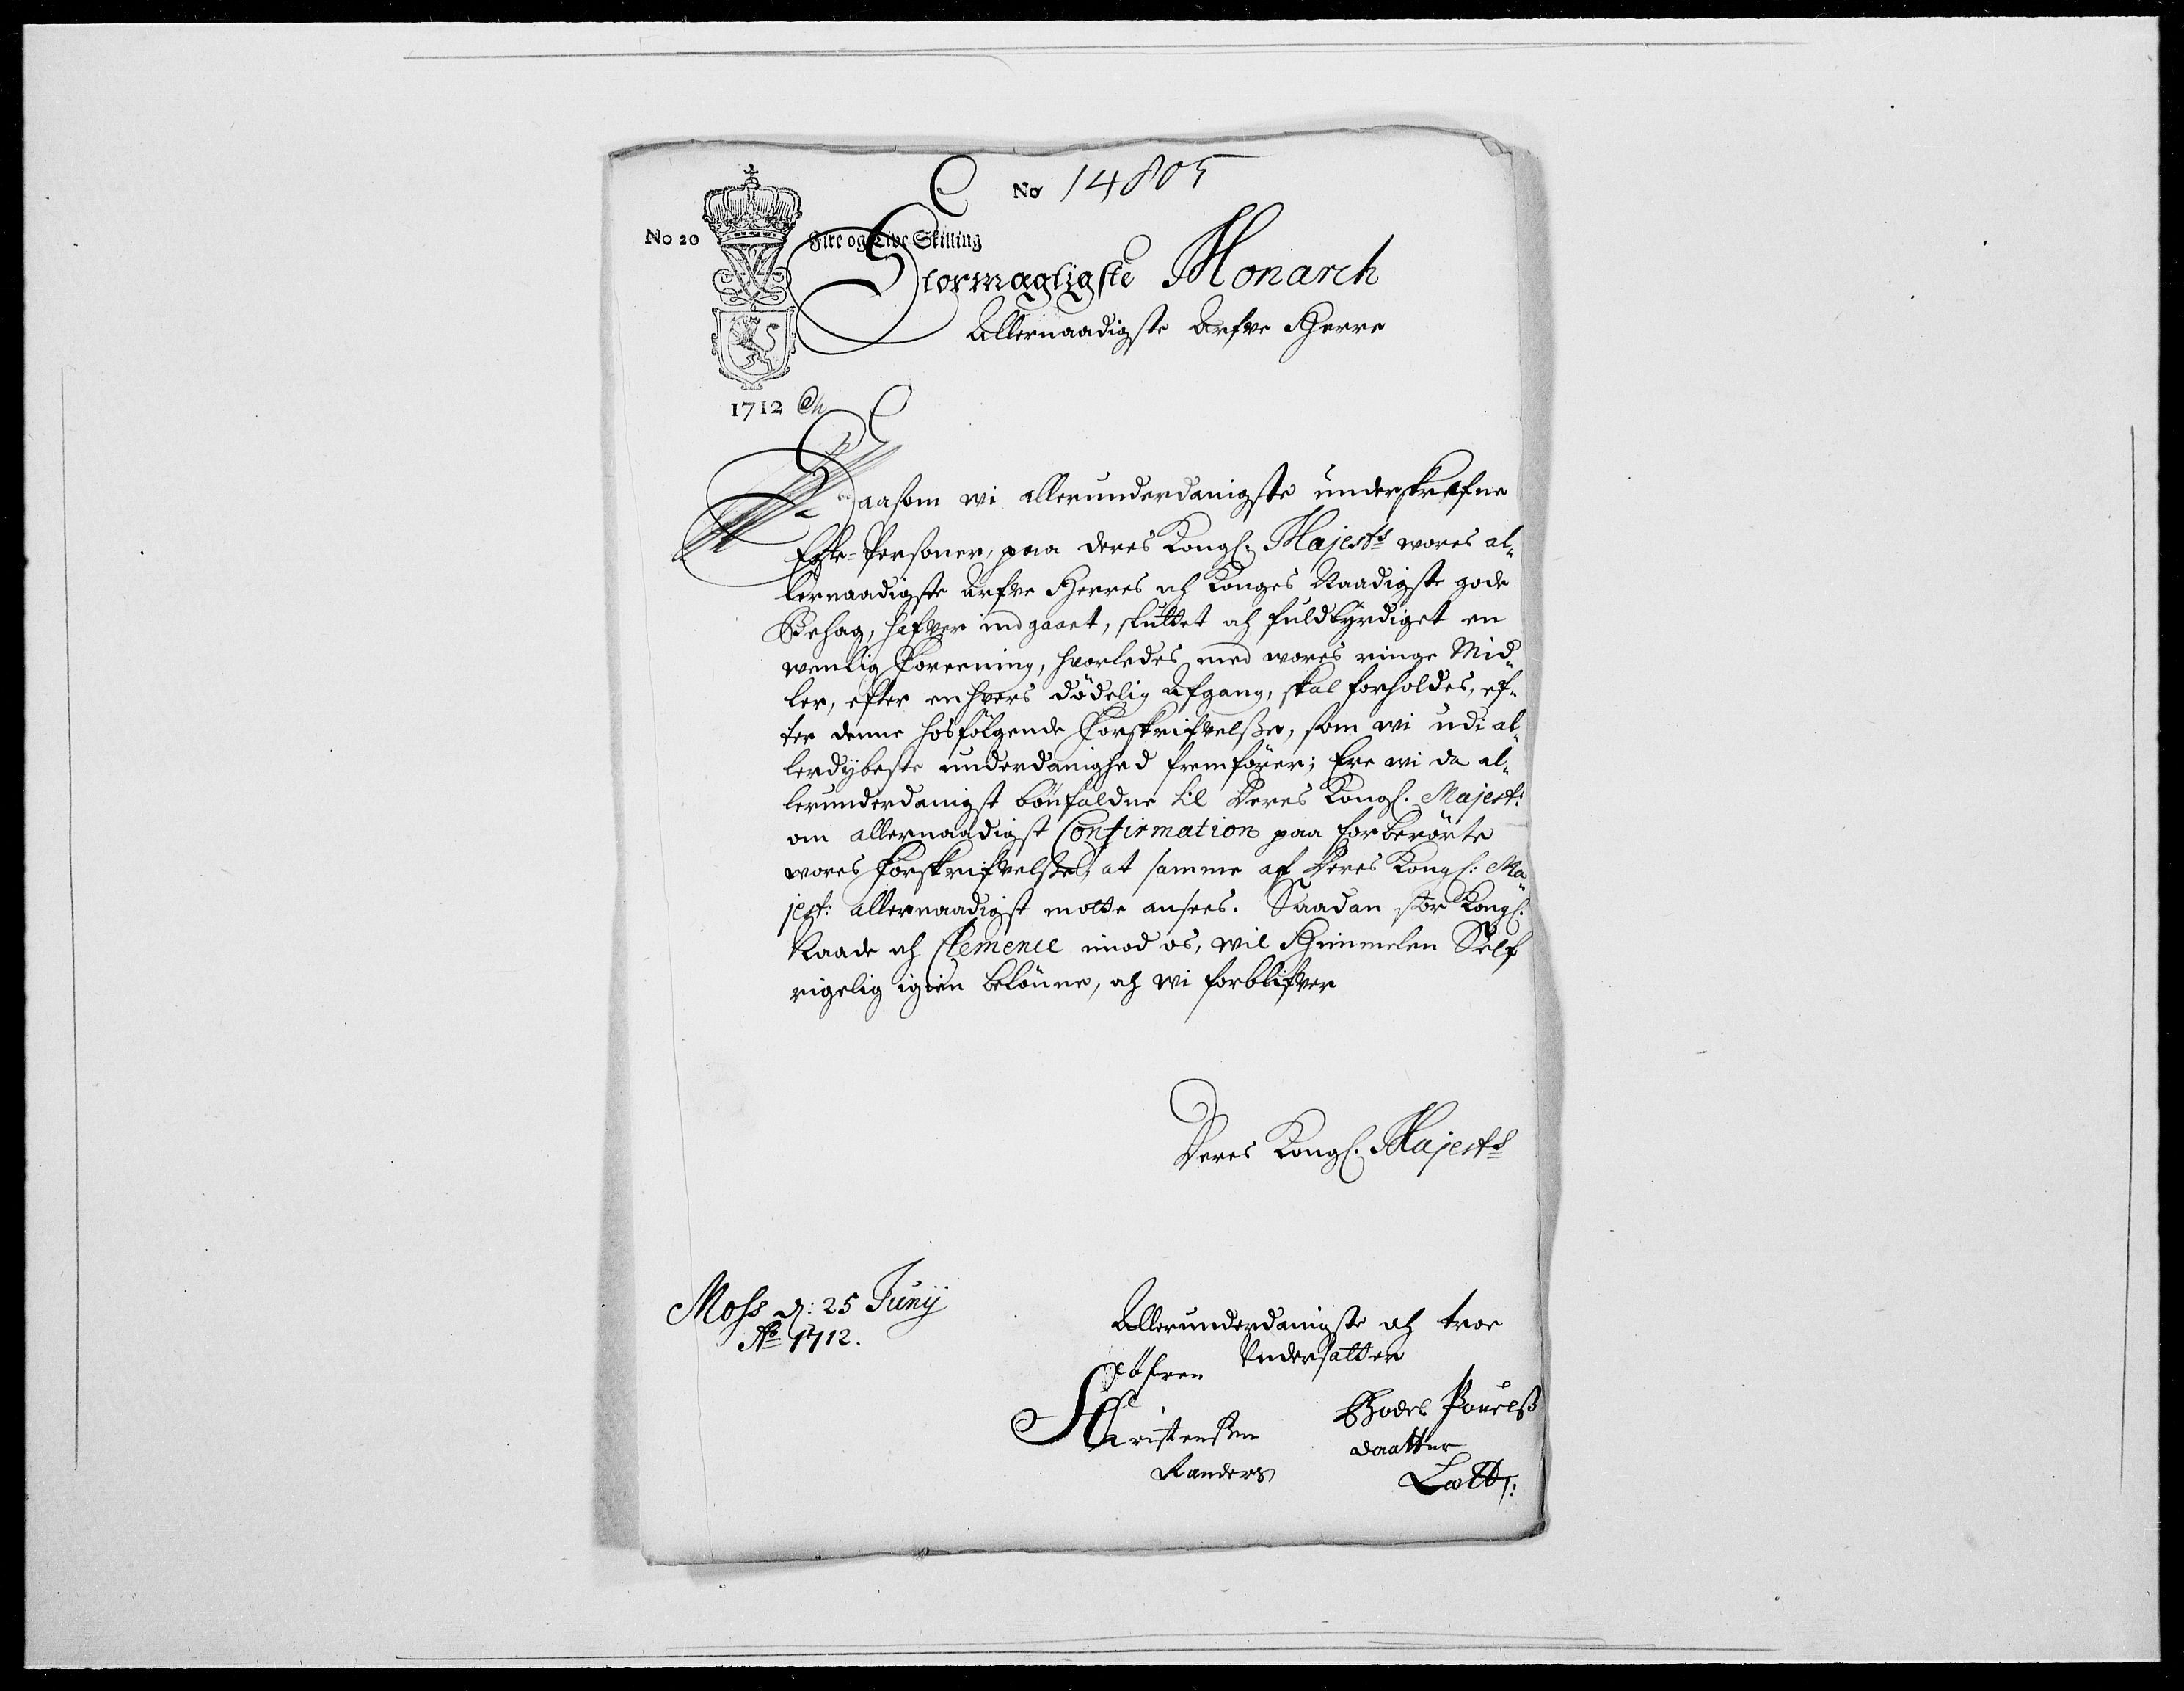 No 14805
No 20
Fire og Tive Skilling
Stormægtigste Monarch
Allernaadigste Arfve Herre
1712
Saasom wi allerunderdanigste underskrefne
Egte-Personer, paa deres Kongl: Majests wores al„
lernaadigste Arfve Herres och Konges Naadigste gode
Behag, hafver indgaaet, sluttet och fuldbyrdiget en
wenlig Foreening, hvorledes med wores ringe Mid„
ler, efter enhvers dödelig Afgang, skal forholdes, ef„
ter denne hosfölgende Forskrifvelsse, som wi udi al„
lerdÿbeste underdanighed fremförer; Ere wi da al„
lerunderdanigst bönfaldne til Deres Kongl. Majest:
om allernaadigst Confirmation paa forberörte
wores Forskrifvelsse, at samme af Deres Kongl: Ma„
jest: allernaadigst motte ansees. Saadan stor Kongl.
Naade och Clemence imod os, wil Himmelen Self
rigelig igien belönne, och wi forblifver
Deres Kongl. Majests
Moss d: 25 Junÿ
Ao 1712.
Allerunderdanigste och troe
Undersatter
Söfren
Christensen
Randers
Bodel Pouelss
daatter